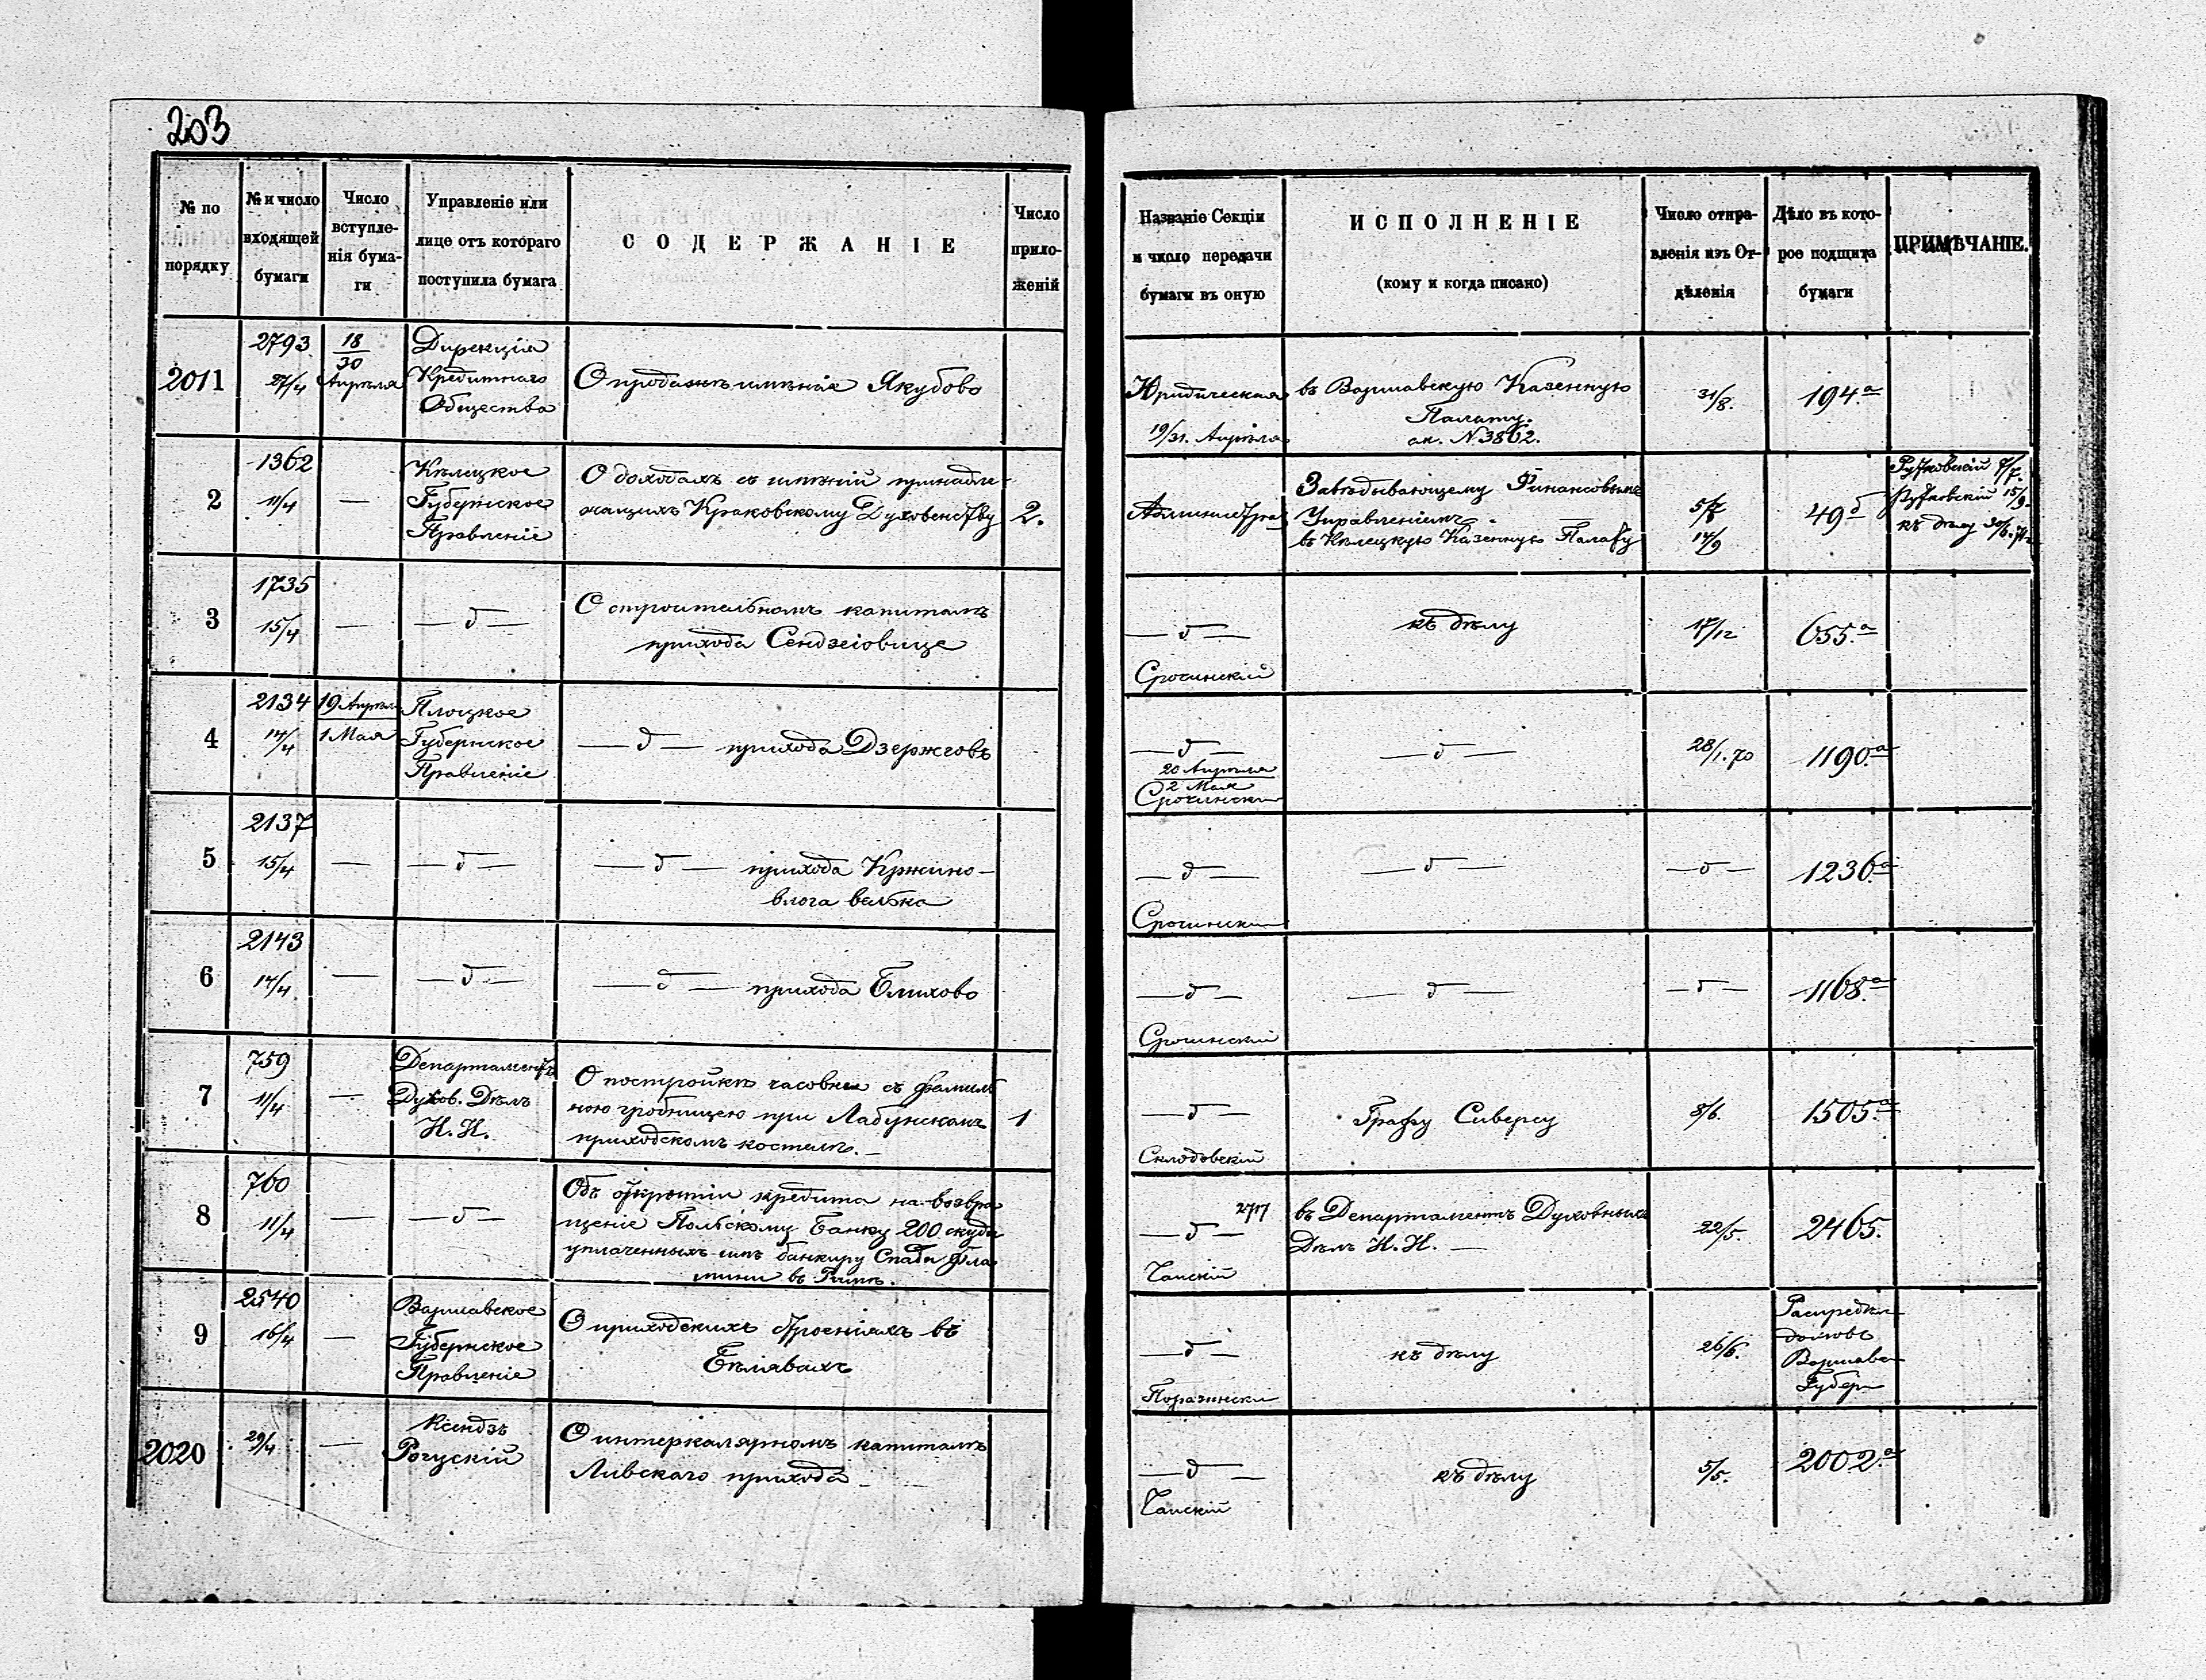 203
№ по порядку
№ и число входящей бумаги
Число вступле-нія бума-ги
Управленіе или лице отъ котораго поступила бумага
СОДЕРЖАНІЕ
Число прило-женій
Названіе Секціи и число передачи бумаги въ оную
ИСПОЛНЕНІЕ
(кому и когда писано)
Число отпра-вленія изъ От-дѣленія
Дѣло въ кото-рое подшита бумаги
ПРИМѢЧАНІЕ.
2011
2793
27/4
18/30
Апрѣля
Дирекція
Кредитнаго
Общества
О продажѣ имѣнія Якубово
Юридическая
19/31. Апрѣля
въ Варшавскую Казенную
Палату.
№ 3862.
31/8.
194.а
2
1362
11/4
—
Кѣлецкое
Губернское
Правленіе
О доходахъ съ имѣній принадле-
жащихъ Краковскому Духовенству
2.
Завѣдывающему Финансовымъ
Управленіемъ.
въ Кѣлецкую Казенную Палату
14/9
49б
къ дѣлу
3
1735
15/4
—
— д —
О строительномъ капиталѣ
прихода Сендзеіовице
— д —
Срочинскій
къ дѣлу
17/12
655.а
4
2134
14/4
19 Апрѣля
1 Мая
Плоцкое
Губернское
Правленіе
— д — прихода Дзержговъ
— д —
20 Апрѣля
2 Мая
Срочинскій
— д —
28/1.70
1190.а
5
2137
15/4
—
— д —
— д — прихода Кржино-
влога велька
— д —
Срочинскій
— д —
— д —
1236.а
6
2143
14/4
—
— д —
— д — прихода Блихово
— д —
Срочинскій
— д —
— д —
1168.а
7
759
11/4
—
Департаментъ
Духов. Дѣлъ
И. И.
О постройкѣ часовни съ фамиль
ною гробницею при Лабунскомъ
приходскомъ костелѣ. —
1
— д —
Склодовскій
Графу Сиверсу
8/6.
1505.а
8
760
11/4
—
— д —
Объ открытіи кредита на возвра
щеніе Польскому Банку 200 скуди
уплаченныхъ имъ банкиру Спада Фла
мини въ Римѣ.
2717
— д —
Чайскій
въ Департаментъ Духовныхъ
Дѣлъ И. И. —
22/5.
2465.
9
2540
16/4
—
Варшавское
Губернское
Правленіе
О приходскихъ строеніяхъ въ
Бѣлявахъ
— д —
Поразинскій
къ дѣлу
26/6.
Варшавс
Губер
2020
29/4
—
Ксендзъ
Рогускій
О интеркалярномъ капиталѣ
Ливскаго прихода
— д —
Чайскій
къ дѣлу
5/5.
2002.а